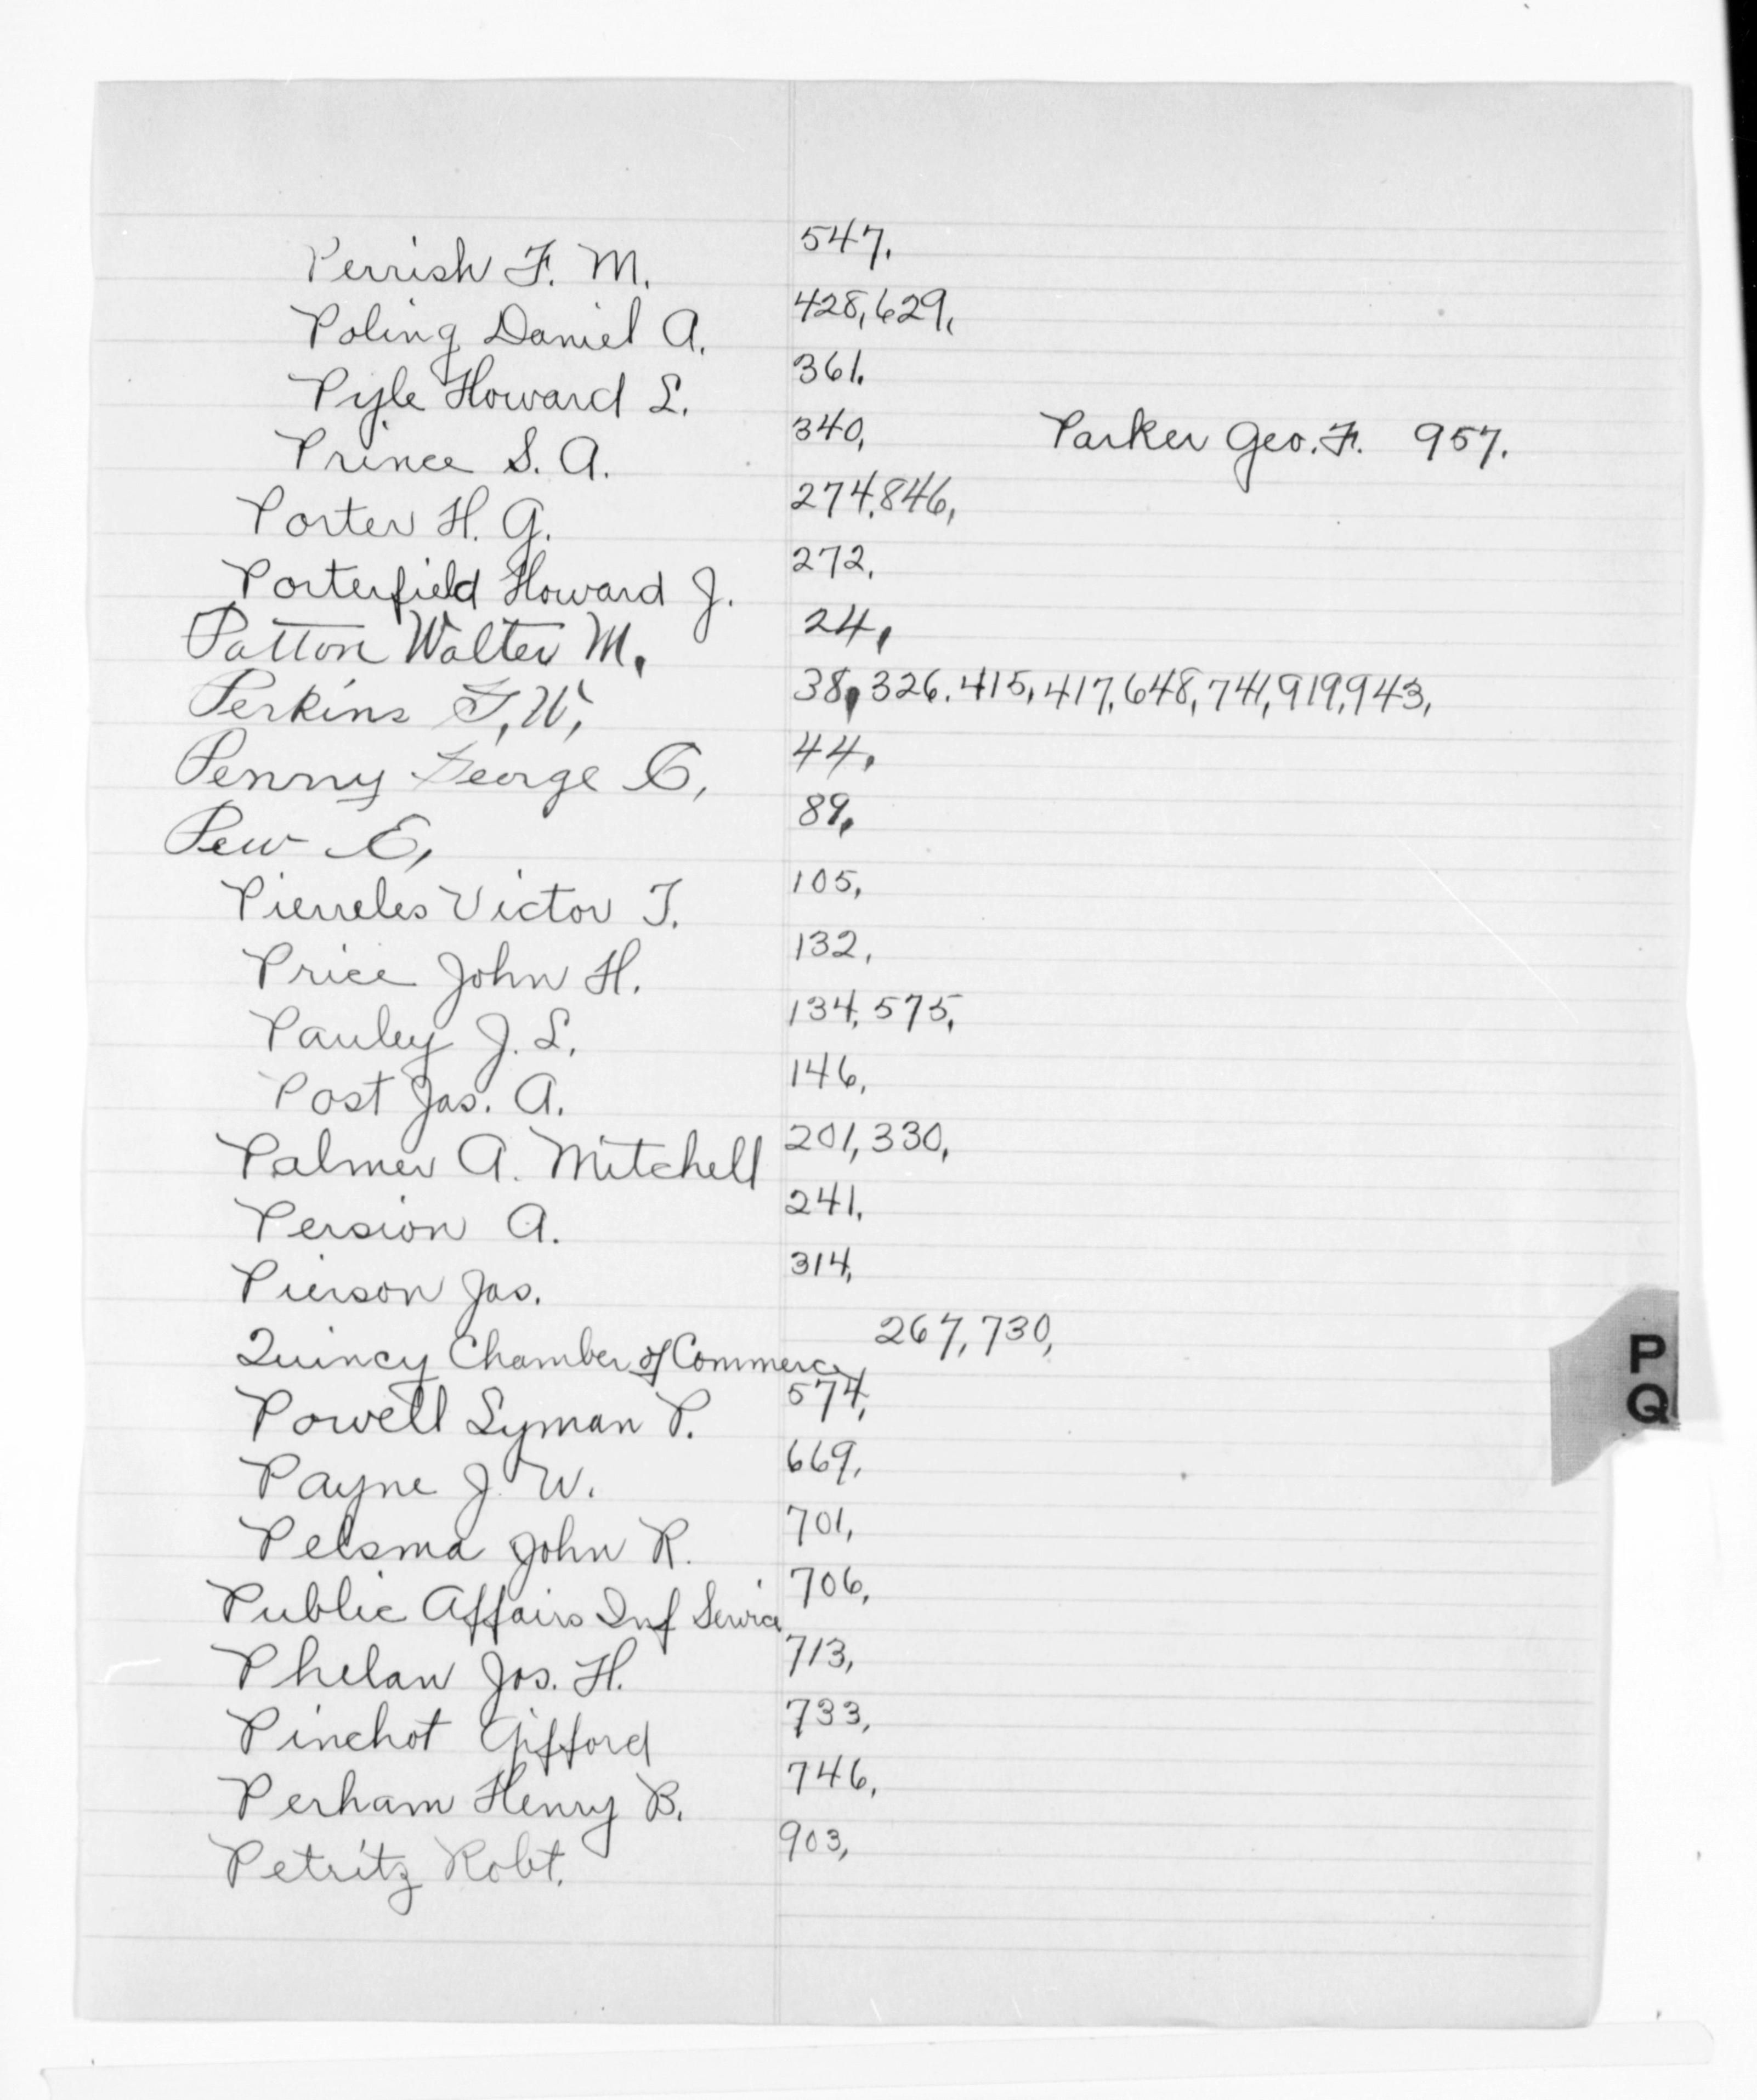 Perrish F. M. 547.
Poling Daniel A. 428, 629,
Pyle Howard L. 361.
Prince S. A. 340, Parker Geo. F. 957.
Porter H. G. 274, 846,
Porterfield Howard J. 272,
Patton Walter M. 24,
Perkins G, W, 38, 326. 415, 417, 648, 741, 919, 943,
Penny George C, 44,
Pew E, 89,
Pierreles Victor T. 105,
Price John H. 132,
Pauley J. L. 134, 575,
Post Jas. A. 146,
Palmer A. Mitchell 201, 330,
Persion A. 241,
Pierson Jas. 314,
Quincy Chamber of Commerce 267, 730,
P
Q
Powell Lyman P. 574,
Payne J. W. 669,
Pelsma John R. 701,
Public Affairs Inf Service 706,
Phelan Jos. H. 713,
Pinchot Gifford 733,
Perham Henry B. 746,
Petritz Robt. 903,